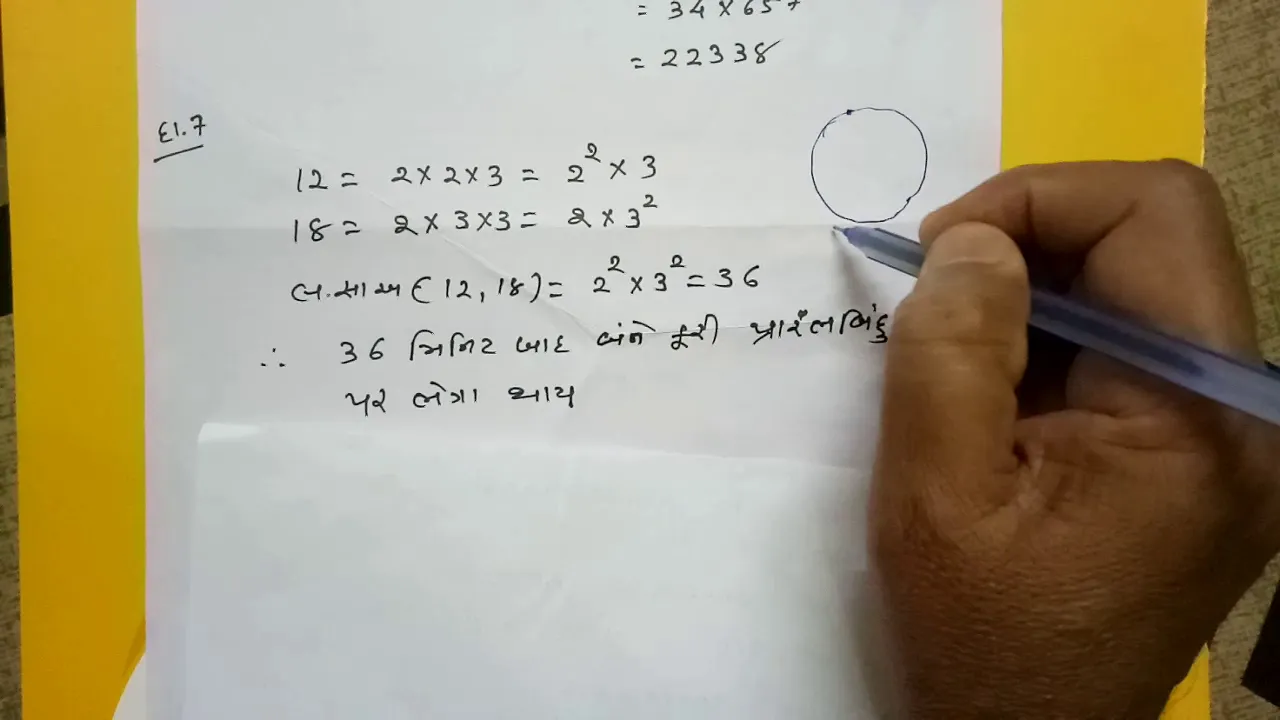 = 34 × 657
= 22338
દા.7
12 = 2 × 2 × 3 = 2² × 3
18 = 2 × 3 × 3 = 2 × 3²
લ.સા.અ (12, 18) = 2² × 3² = 36
∴ 36 મિનિટ બાદ બંને ફરી પ્રારંભબિંદુ
પર ભેગા થાય